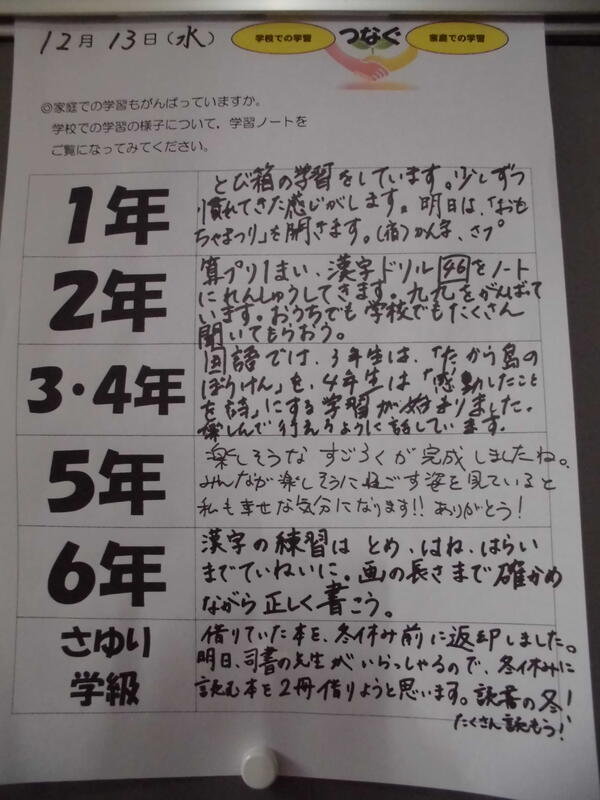 12月13日(水)
学校での学習 つなぐ 家庭での学習
◎家庭での学習もがんばっていますか。
学校での学習の様子について，学習ノートを
ご覧になってみてください。
1年
とび箱の学習をしています。少しずつ
慣れてきた感じがします。明日は、「おも
ちゃまつり」を開きます。(宿)かんま、さプ
2年
算プリ1まい、漢字ドリル46をノート
にれんしゅうしてきます。九九をがんばって
います。おうちでも学校でもたくさん
聞いてもらおう。
3・4年
国語では、3年生は、「たから島の
ぼうけん」を、4年生は「感動したこと
を詩」にする学習が始まりました。
楽しんで行えるように話しています。
5年
楽しそうなすごろくが完成しましたね。
みんなが楽しそうに過ごす姿を見ていると
私も幸せな気分になります!!ありがとう!
6年
漢字の練習はとめ、はね、はらい
までていねいに。画の長さまで確かめ
ながら正しく書こう。
さゆり
学級
借りていた本を、冬休み前に返却しました。
明日、司書の先生がいらっしゃるので、冬休みに
読む本を2冊借りようと思います。読書の冬!
たくさん読もう!